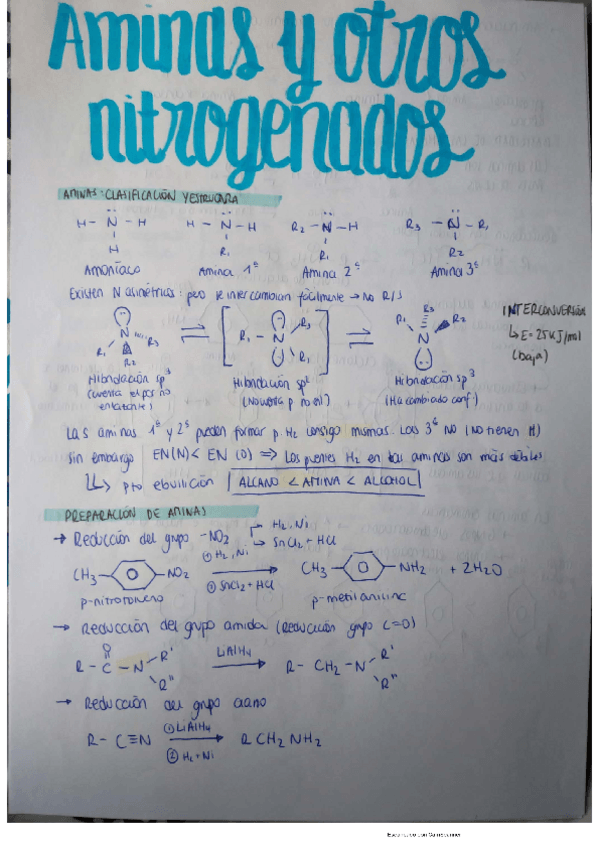 Aminas y otros
nitrogenados
AMINAS: CLASIFICACIÓN Y ESTRUCTURA
H - N̈ - H H - N̈ - H R₂ - N̈ - H R₃ - N̈ - R₁
H R₁ R₁ R₂
Amoníaco Amina 1ª Amina 2ª Amina 3ª
Existen N asimétricos: pero se intercambian fácilmente → No R/S
INTERCONVERSIÓN
↳ E = 25 KJ/mol
(baja)
R₁ N R₃ ⇌ [R₁ - N R₃ R₂] ⇌ R₁ N R₃ R₂
R₂
Hibridación sp³ Hibridación sp² Hibridación sp³
(cuenta el par no (No cuenta p no enl) (Ha cambiado conf.)
enlazante)
Las aminas 1ª y 2ª pueden formar p. H₂ consigo mismas. Las 3ª NO (No tienen H)
Sin embargo EN(N) < EN (O) ⇒ Los puentes H₂ en las aminas son más débiles
↳ pto ebullición ALCANO < AMINA < ALCOHOL
PREPARACIÓN DE AMINAS
→ Reducción del grupo -NO₂ → H₂, Ni
→ SnCl₂ + HCl
CH₃ - NO₂ ① H₂, Ni ② SnCl₂ + HCl → CH₃ - NH₂ + 2H₂O
p-nitrotolueno p-metilanilina
→ Reducción del grupo amida (Reducción grupo C=O)
R - C(=O) - N R' R'' LiAlH₄ → R - CH₂ - N R' R''
→ Reducción del grupo ciano
R - C≡N ① LiAlH₄ ② H₂ + Ni → R CH₂ NH₂
Escaneado con CamScanner